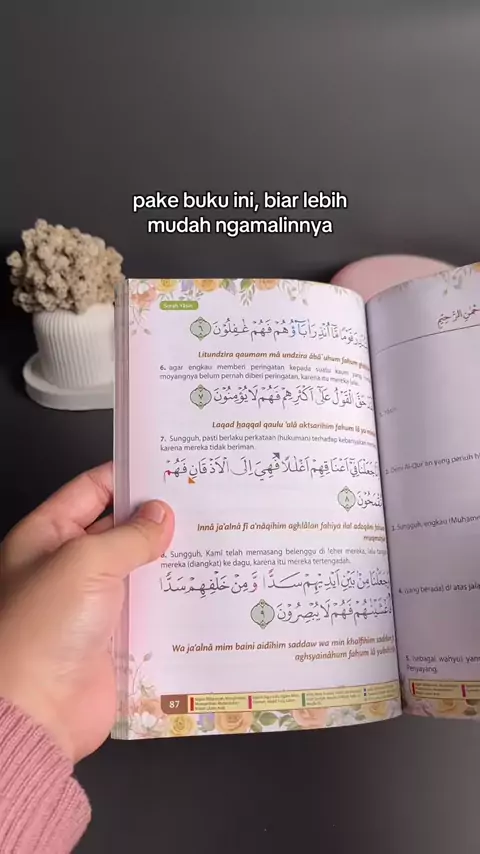 pake buku ini, biar lebih
mudah ngamalinnya
Surah Yasin
قَوْمًا مَّآ أُنْذِرَ اٰبَاۤؤُهُمْ فَهُمْ غٰفِلُوْنَ ٦
Litundzira qaumam mâ undzira âbâ'uhum fahum
6. agar engkau memberi peringatan kepada suatu kaum yang
moyangnya belum pernah diberi peringatan, karena itu mereka
حَقَّ الْقَوْلُ عَلٰٓى اَكْثَرِهِمْ فَهُمْ لَا يُؤْمِنُوْنَ ٧
Laqad ḥaqqal qaulu 'alâ aktsarihim fahum lâ
7. Sungguh, pasti berlaku perkataan (hukuman) terhadap
karena mereka tidak beriman.
جَعَلْنَا فِيْٓ اَعْنَاقِهِمْ اَغْلٰلًا فَهِيَ اِلَى الْاَذْقَانِ فَهُمْ
مُّقْمَحُوْنَ ٨
Innâ ja'alnâ fî a'nâqihim aghlâlan fahiya ilal adzqâni
8. Sungguh. Kami telah memasang belenggu di leher mereka, lalu
mereka (diangkat) ke dagu, karena itu mereka tertengadah.
جَعَلْنَا مِنْۢ بَيْنِ اَيْدِيْهِمْ سَدًّا وَّمِنْ خَلْفِهِمْ سَدًّا
فَاَغْشَيْنٰهُمْ فَهُمْ لَا يُبْصِرُوْنَ ٩
Wa ja'alnâ mim baini aidîhim saddaw wa min khalfihim saddan
aghsyainâhum fahum lâ
87
2. Demi Al-Qur'an yang penuh
3. Sungguh, engkau (Muhammad)
4. (yang berada) di atas jalan
5. (sebagai) wahyu yang
Penyayang,